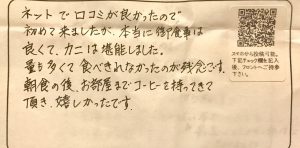 ネットで口コミが良かったので
初めて来ましたが、本当に御食事は
良くて、カニは堪能しました。
量も多くて食べきれなかったのが残念です。
朝食の後、お部屋までコーヒを持ってきて
頂き、嬉しかったです。
スマホから投稿可能。
下記チェック欄を記入
後、フロントへご持参
下さい。